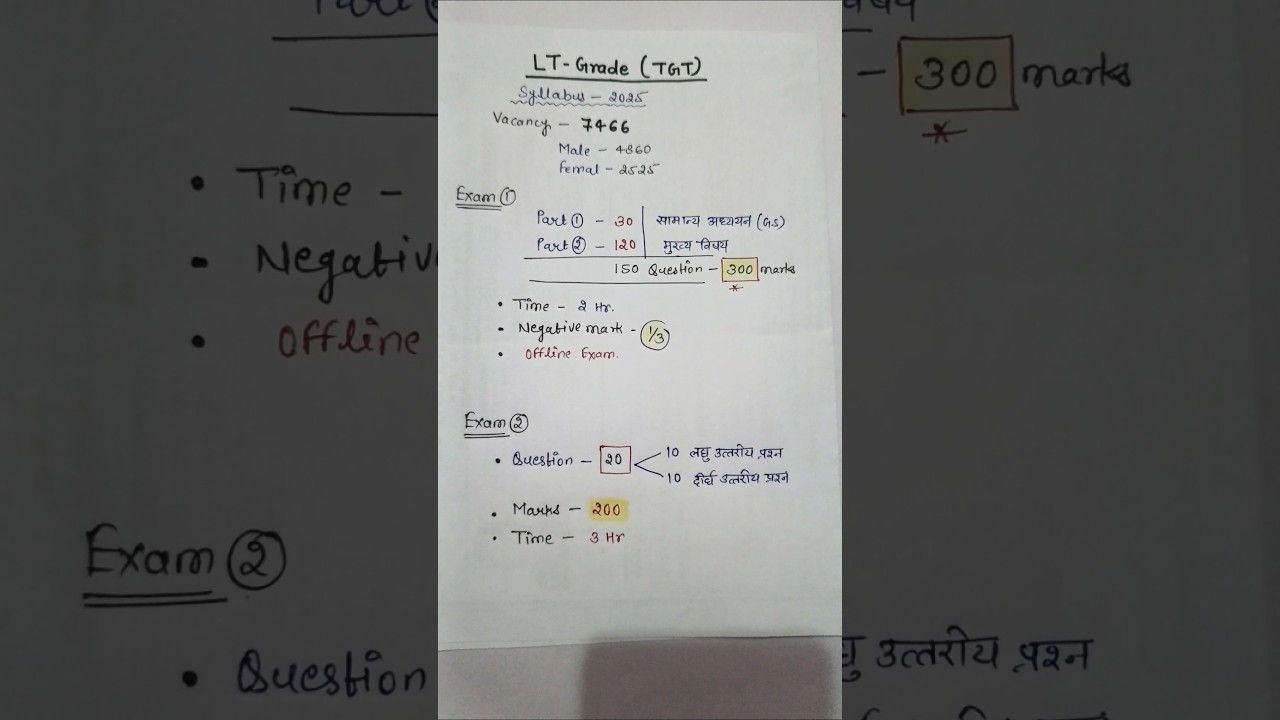 LT-Grade (TGT)
Syllabus - 2025
Vacancy - 7466
Male - 4860
Femal - 2525
Exam ①
Part ① - 30 | सामान्य अध्ययन (G.S)
Part ② - 120 | मुख्य विषय
150 Question - 300 marks
*
• Time - 2 Hr.
• Negative mark - 1/3
• Offline Exam.
Exam ②
• Question - 20 < 10 लघु उत्तरीय प्रश्न
10 दीर्घ उत्तरीय प्रश्न
• Marks - 200
• Time - 3 Hr